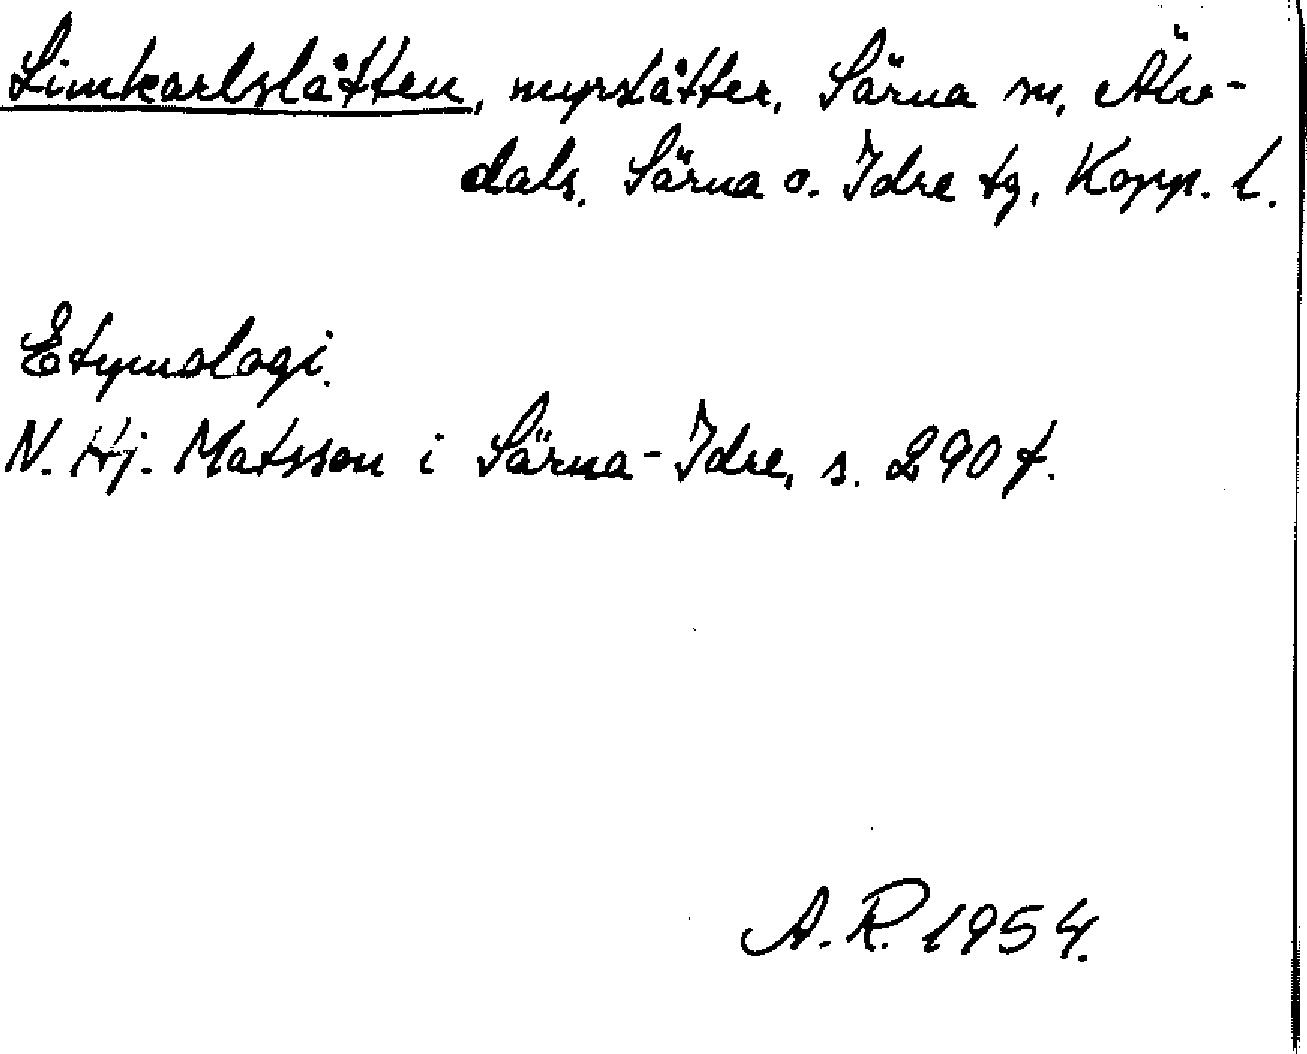 Limkarlslåtten, myrslåtter, Särna sn, Älv-
dals, Särna o. Idre tg, Kopp. l.
Etymologi.
N. Hj. Matsson i Särna-Idre, s. 290 f.
A. R. 1954.